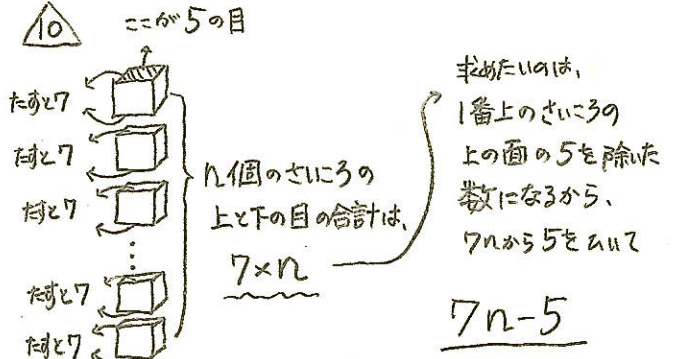 10
ここが5の目
たすと7
たすと7
たすと7
たすと7
たすと7
n個のさいころの
上と下の目の合計は、
7×n
求めたいのは、
1番上のさいころの
上の面の5を除いた
数になるから、
7nから5をひいて
7n-5